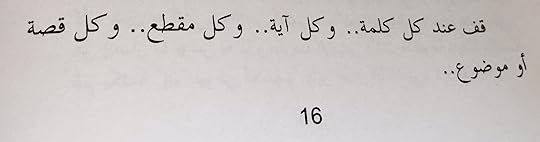 قف عند كل كلمة.. وكل آية.. وكل مقطع.. وكل قصة
أو موضوع..
16